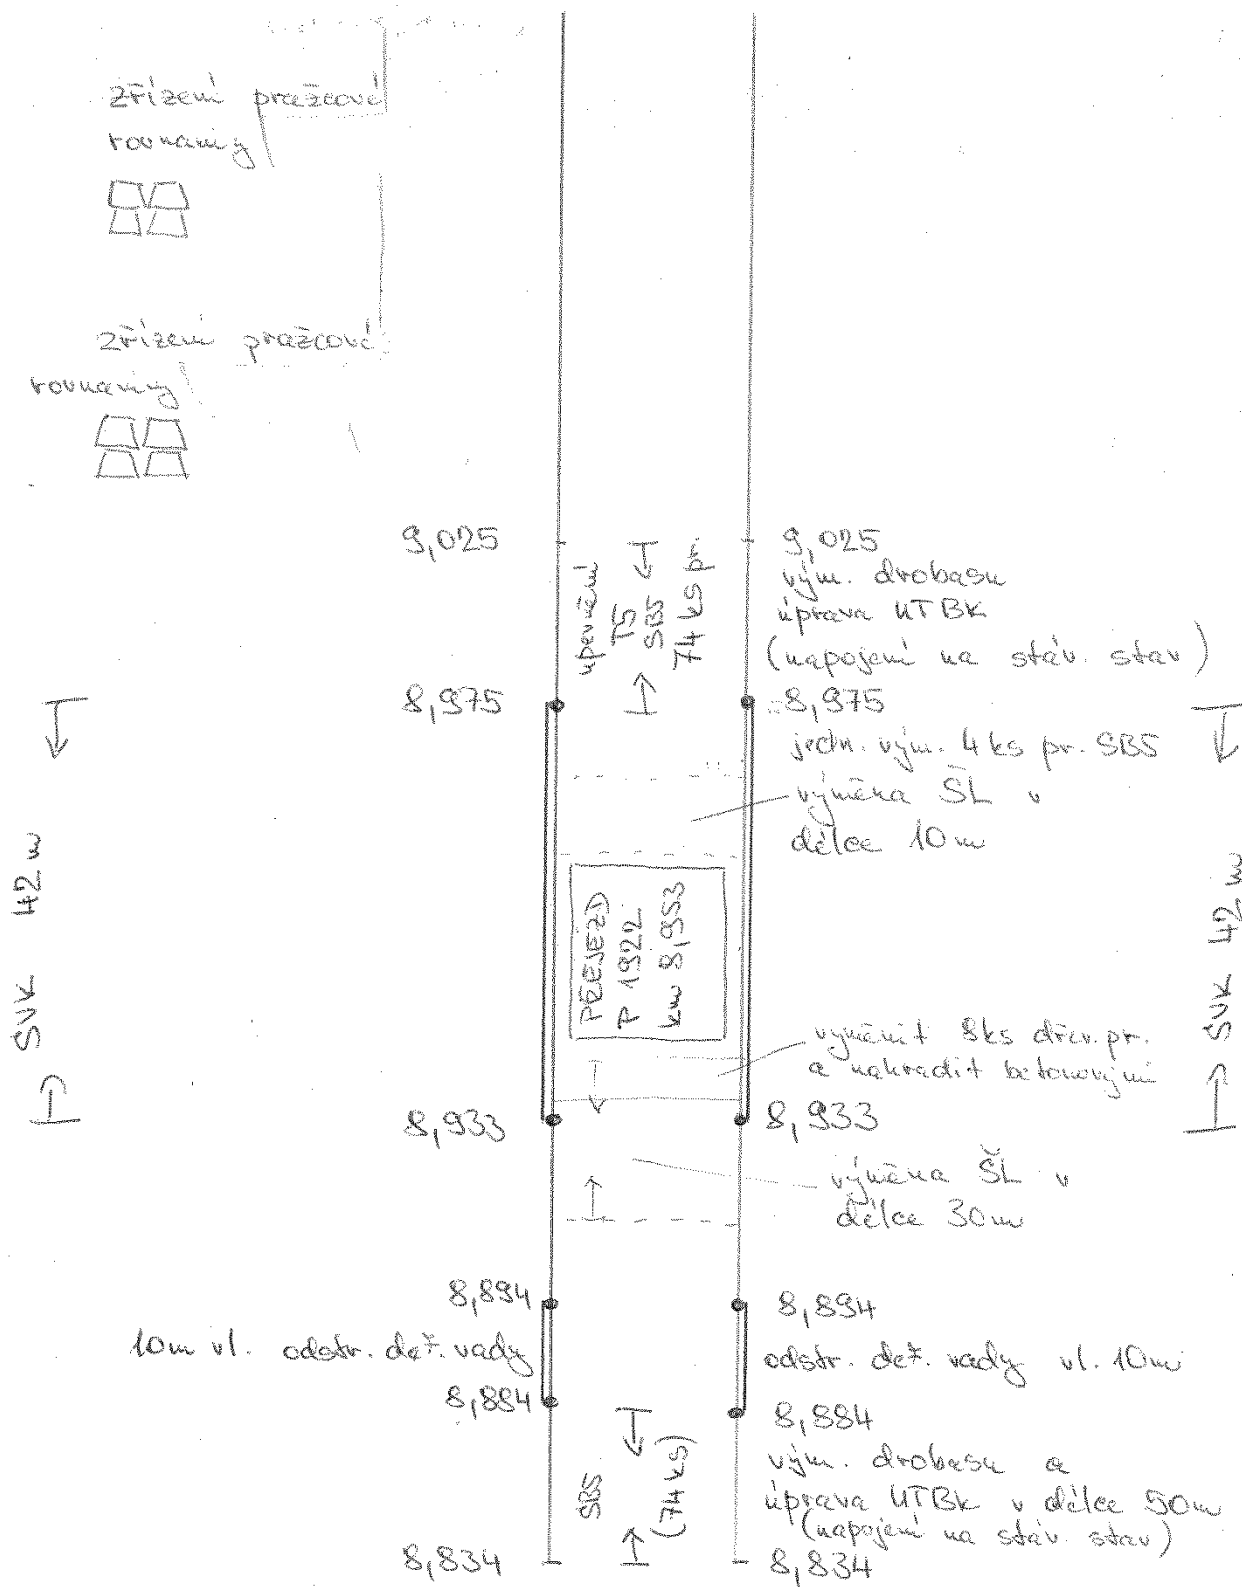 zřízení pražcové
rovnaniny
zřízení pražcové
rovnaniny
9,025
upevnění
TS
SB5
74 ks pr.
9,025
vým. drobasu
úprava UTBK
(napojení na stáv. stav)
8,975
8,975
jedn. vým. 4 ks pr. SB5
výměna ŠL v
délce 10m
SVK 42m
PŘEJEZD
P 1922
km 8,953
SVK 42m
vyměnit 8ks dřev. pr.
a nahradit betonovými
8,933
8,933
výměna ŠL v
délce 30m
8,894
8,894
10m vl. odstr. def. vady
odstr. def. vady vl. 10m
8,884
8,884
SB5
(74 ks)
vým. drobasu a
úprava UTBK v délce 50m
(napojení na stáv. stav)
8,834
8,834